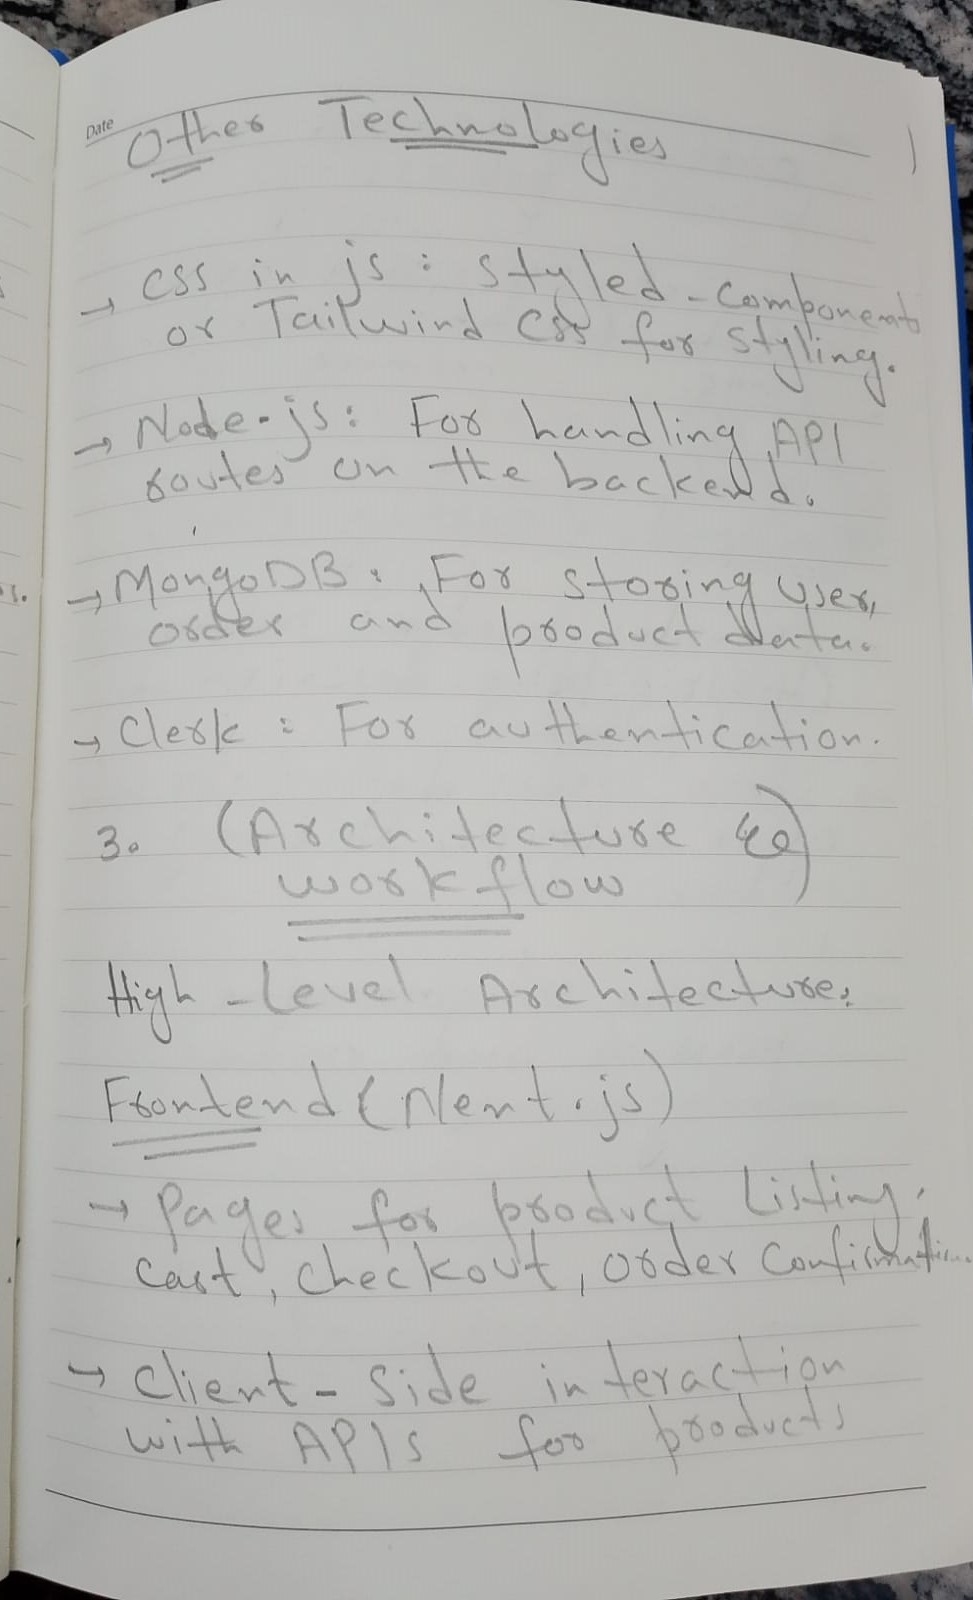 Date
Other Technologies
→ CSS in js : styled-components
or Tailwind CSS for styling.
→ Node-js: For handling API
routes on the backend.
→ MongoDB : For storing user,
order and product data.
→ Clerk : For authentication.
3. (Architecture &)
workflow
High-Level Architecture:
Frontend (Next.js)
→ Pages for product Listing,
Cart, checkout, order Confirmation.
→ Client-Side interaction
with APIs for products